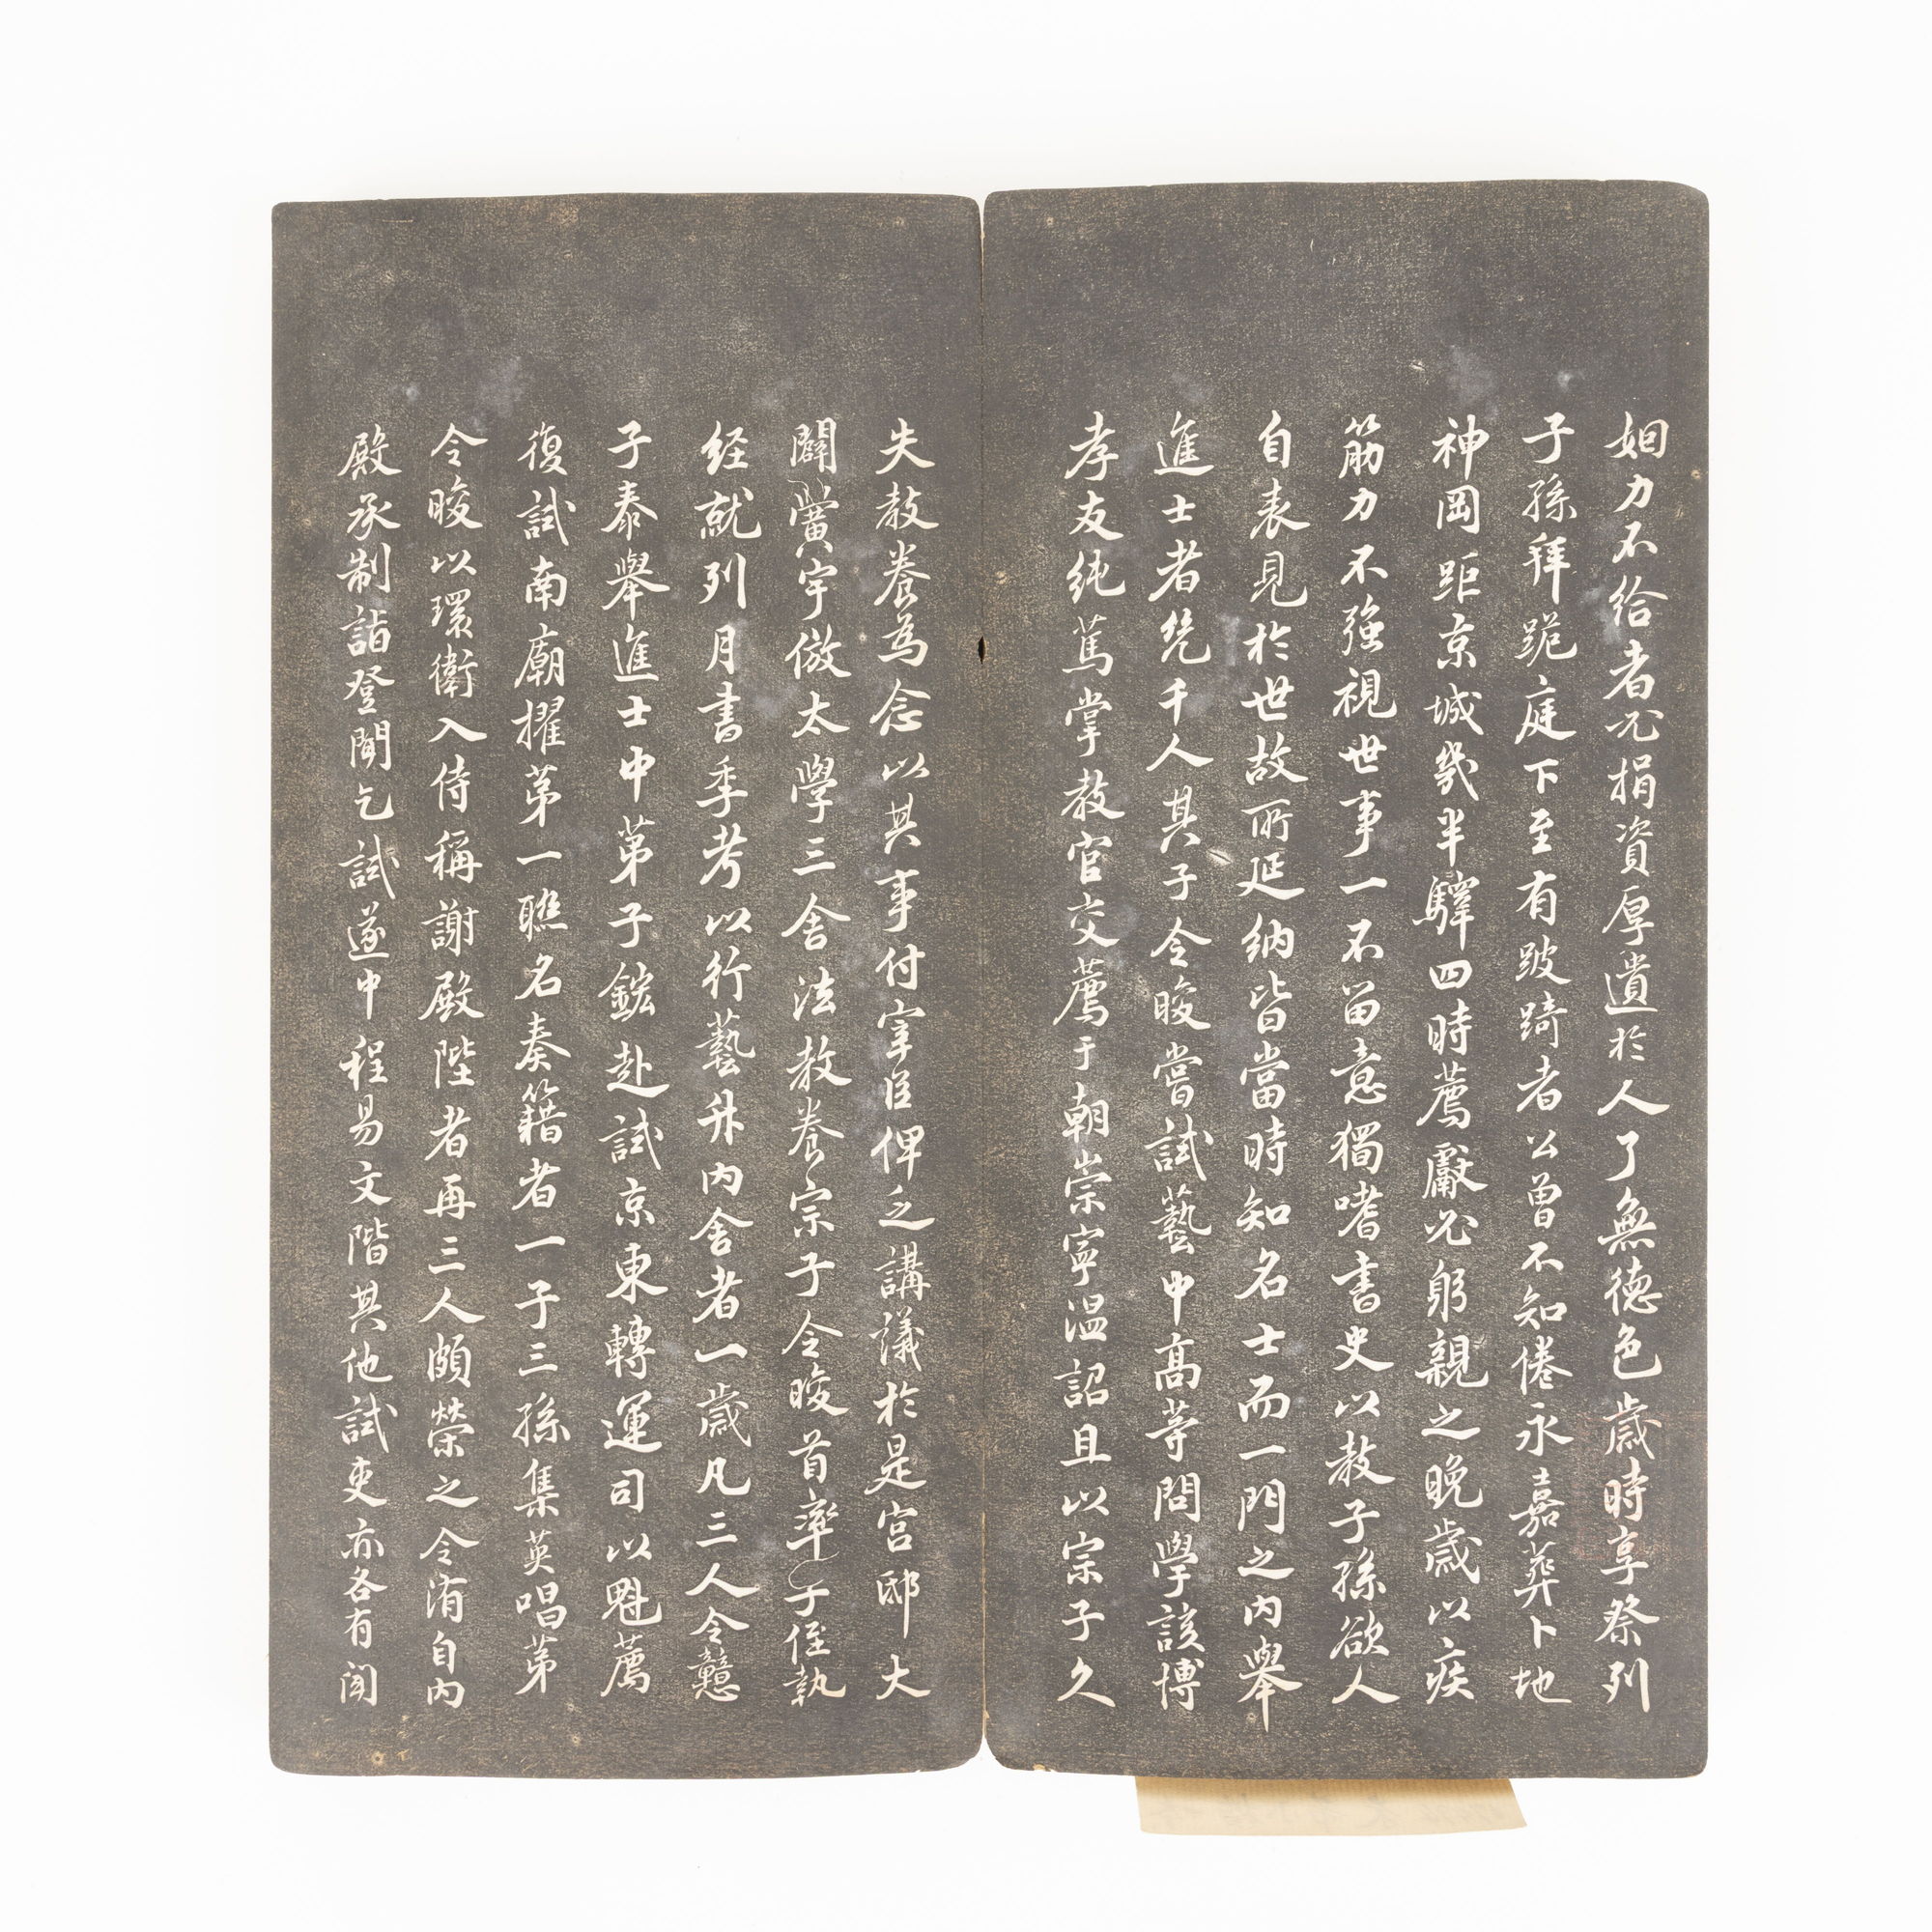 姻力不給者必捐資厚遺於人了無德色歲時享祭列
子孫拜跪庭下至有跛踦者公曾不知倦永嘉葬卜地
神岡距京城幾半驛四時薦獻必躬親之晚歲以疾
筋力不強視世事一不留意獨嗜書史以教子孫欲人
自表見於世故所延納皆當時知名士而一門之內舉
進士者先千人其子令晙嘗試藝中高等問學該博
孝友純篤掌教官交薦于朝崇寧溫詔且以宗子久
失教養為念以其事付宰臣俾之講議於是宮邸大
闢黌宇倣太學三舍法教養宗子令晙首率子侄執
经就列月書季考以行藝升內舍者一歲凡三人令戇
子泰舉進士中第子鋐赴試京東轉運司以魁薦
復試南廟擢第一聯名奏籍者一子三孫集英唱第
令晙以環衛入侍稱謝殿陛者再三人頗榮之令洧自內
殿承制詣登聞乞試遂中程易文階其他試吏亦各有聞